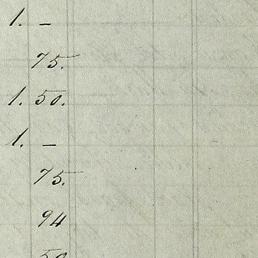 1. –
75.
1. 50.
1. –
75.
94
50